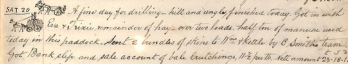 SAT 20 A fine day for drilling - hill and angle finished today. Got in with
Lea & Trixie remainder of hay - over two loads. Half ton of manure used
today on this paddock. Sent 2 bundles of skins to Wm & Kettle by B Smith's team.
Got Bank slip and sale account of bals Hutchinson, nett amount 23-18-1